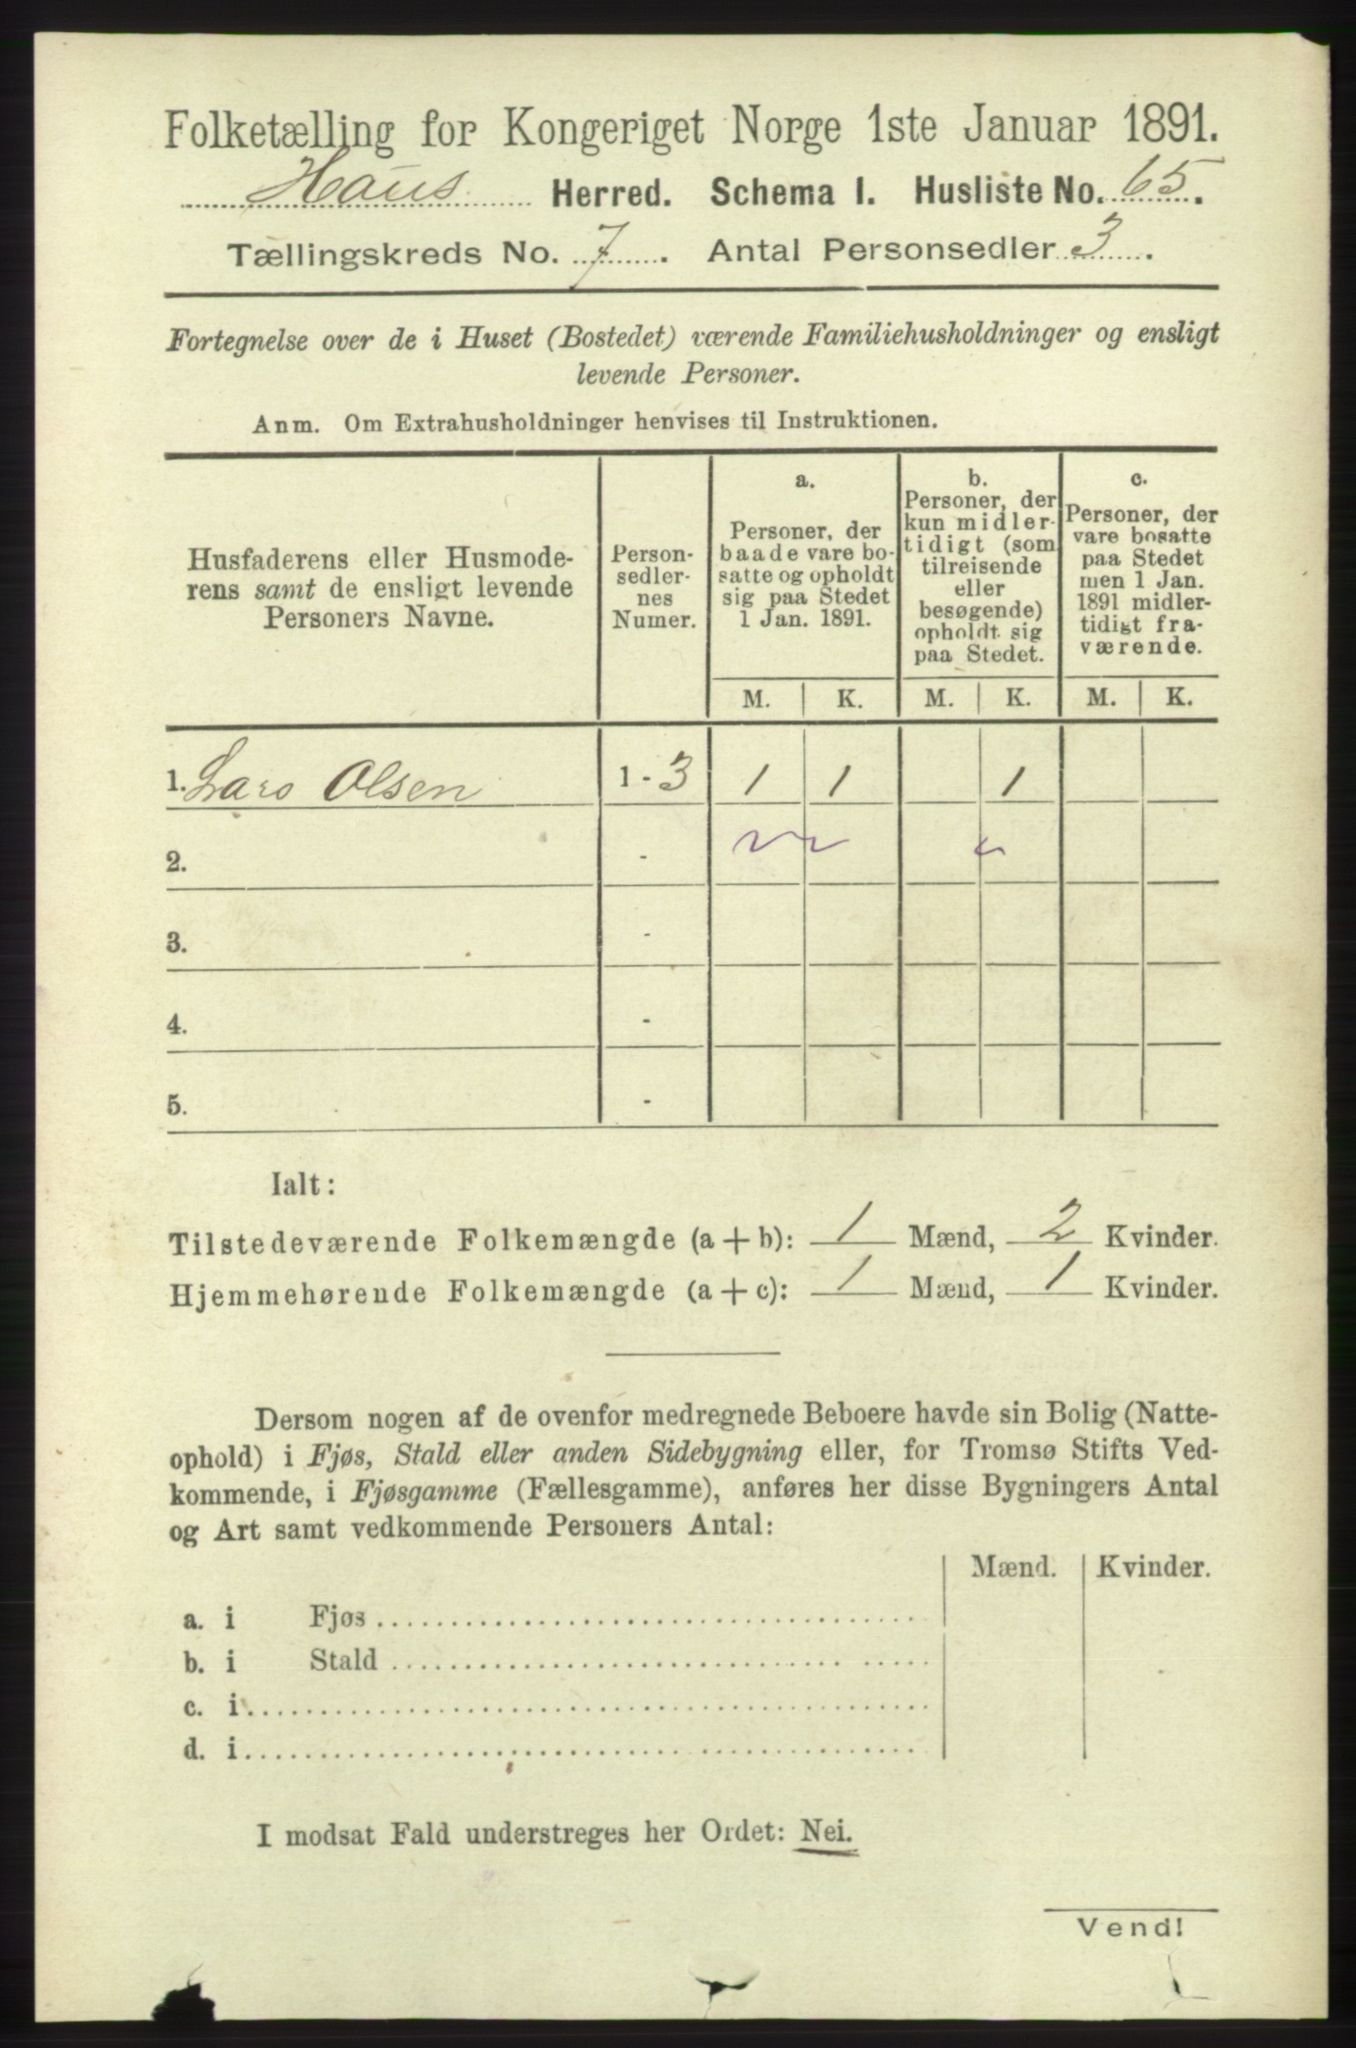 Folketælling for Kongeriget Norge 1ste Januar 1891.
Haus Herred. Schema I. Husliste No. 65.
Tællingskreds No. 7. Antal Personsedler 3.
Fortegnelse over de i Huset (Bostedet) værende Familiehusholdninger og ensligt
levende Personer.
Anm. Om Extrahusholdninger henvises til Instruktionen.
Husfaderens eller Husmode-
rens samt de ensligt levende
Personers Navne.
Person-
sedler-
nes
Numer.
a.
Personer, der
baade vare bo-
satte og opholdt
sig paa Stedet
1 Jan. 1891.
b.
Personer, der
kun midler-
tidigt (som
tilreisende
eller
besøgende)
opholdt sig
paa Stedet.
c.
Personer, der
vare bosatte
paa Stedet
men 1 Jan.
1891 midler-
tidigt fra-
værende.
M. K. M. K. M. K.
1. Lars Olsen 1 - 3 1 1 1
2. -
3. -
4. -
5. -
Ialt:
Tilstedeværende Folkemængde (a + b): 1 Mænd, 2 Kvinder.
Hjemmehørende Folkemængde (a + c): 1 Mænd, 1 Kvinder.
Dersom nogen af de ovenfor medregnede Beboere havde sin Bolig (Natte-
ophold) i Fjøs, Stald eller anden Sidebygning eller, for Tromsø Stifts Ved-
kommende, i Fjøsgamme (Fællesgamme), anføres her disse Bygningers Antal
og Art samt vedkommende Personers Antal:
Mænd. Kvinder.
a. i Fjøs
b. i Stald
c. i
d. i
I modsat Fald understreges her Ordet: Nei.
Vend!